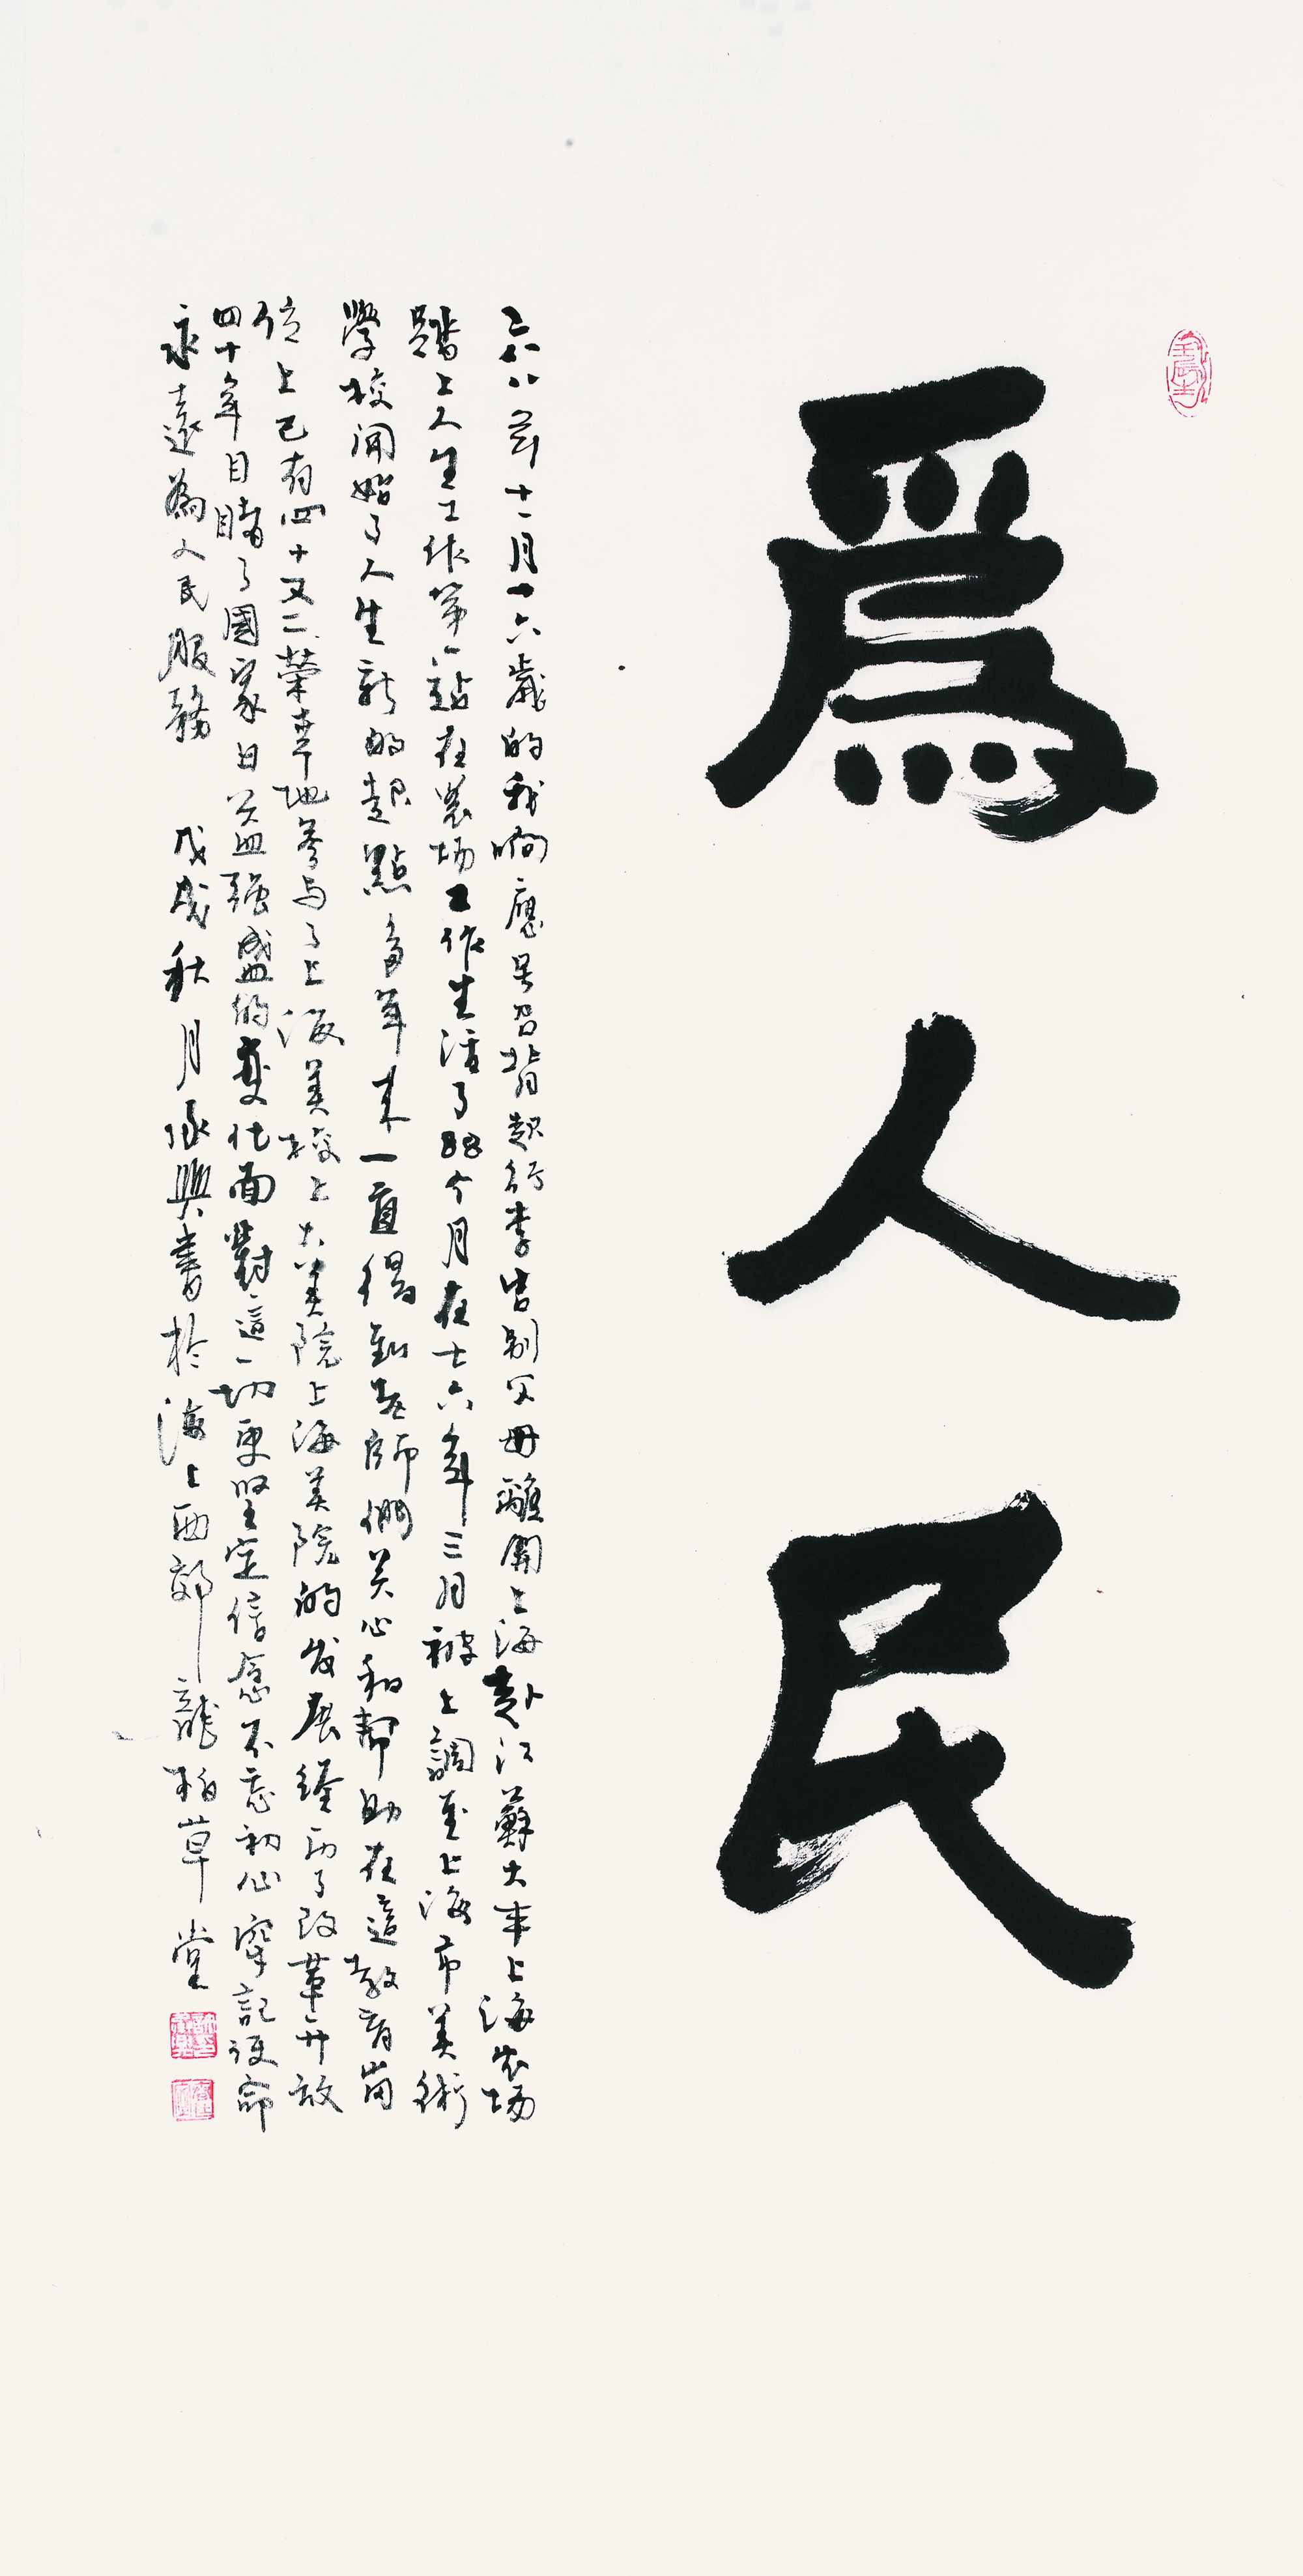 為人民
六八年十一月十六歲的我响應号召背起行李告别父母離開上海赴江蘇大丰上海农场
踏上人生工作第一站在農场工作生活了88个月在七六年三月被上調至上海市美術
學校開始了人生新的起點多年来一直得到老師們关心和幇助在這教育崗
位上已有四十又二荣幸地参与了上海美校上大美院上海美院的发展經历了改革开放
四十年目睹了國家日益强盛的变化面對這一切更坚定信念不忘初心牢記使命
永遠為人民服務 戊戌秋月 興書於海上西郊龍柏草堂